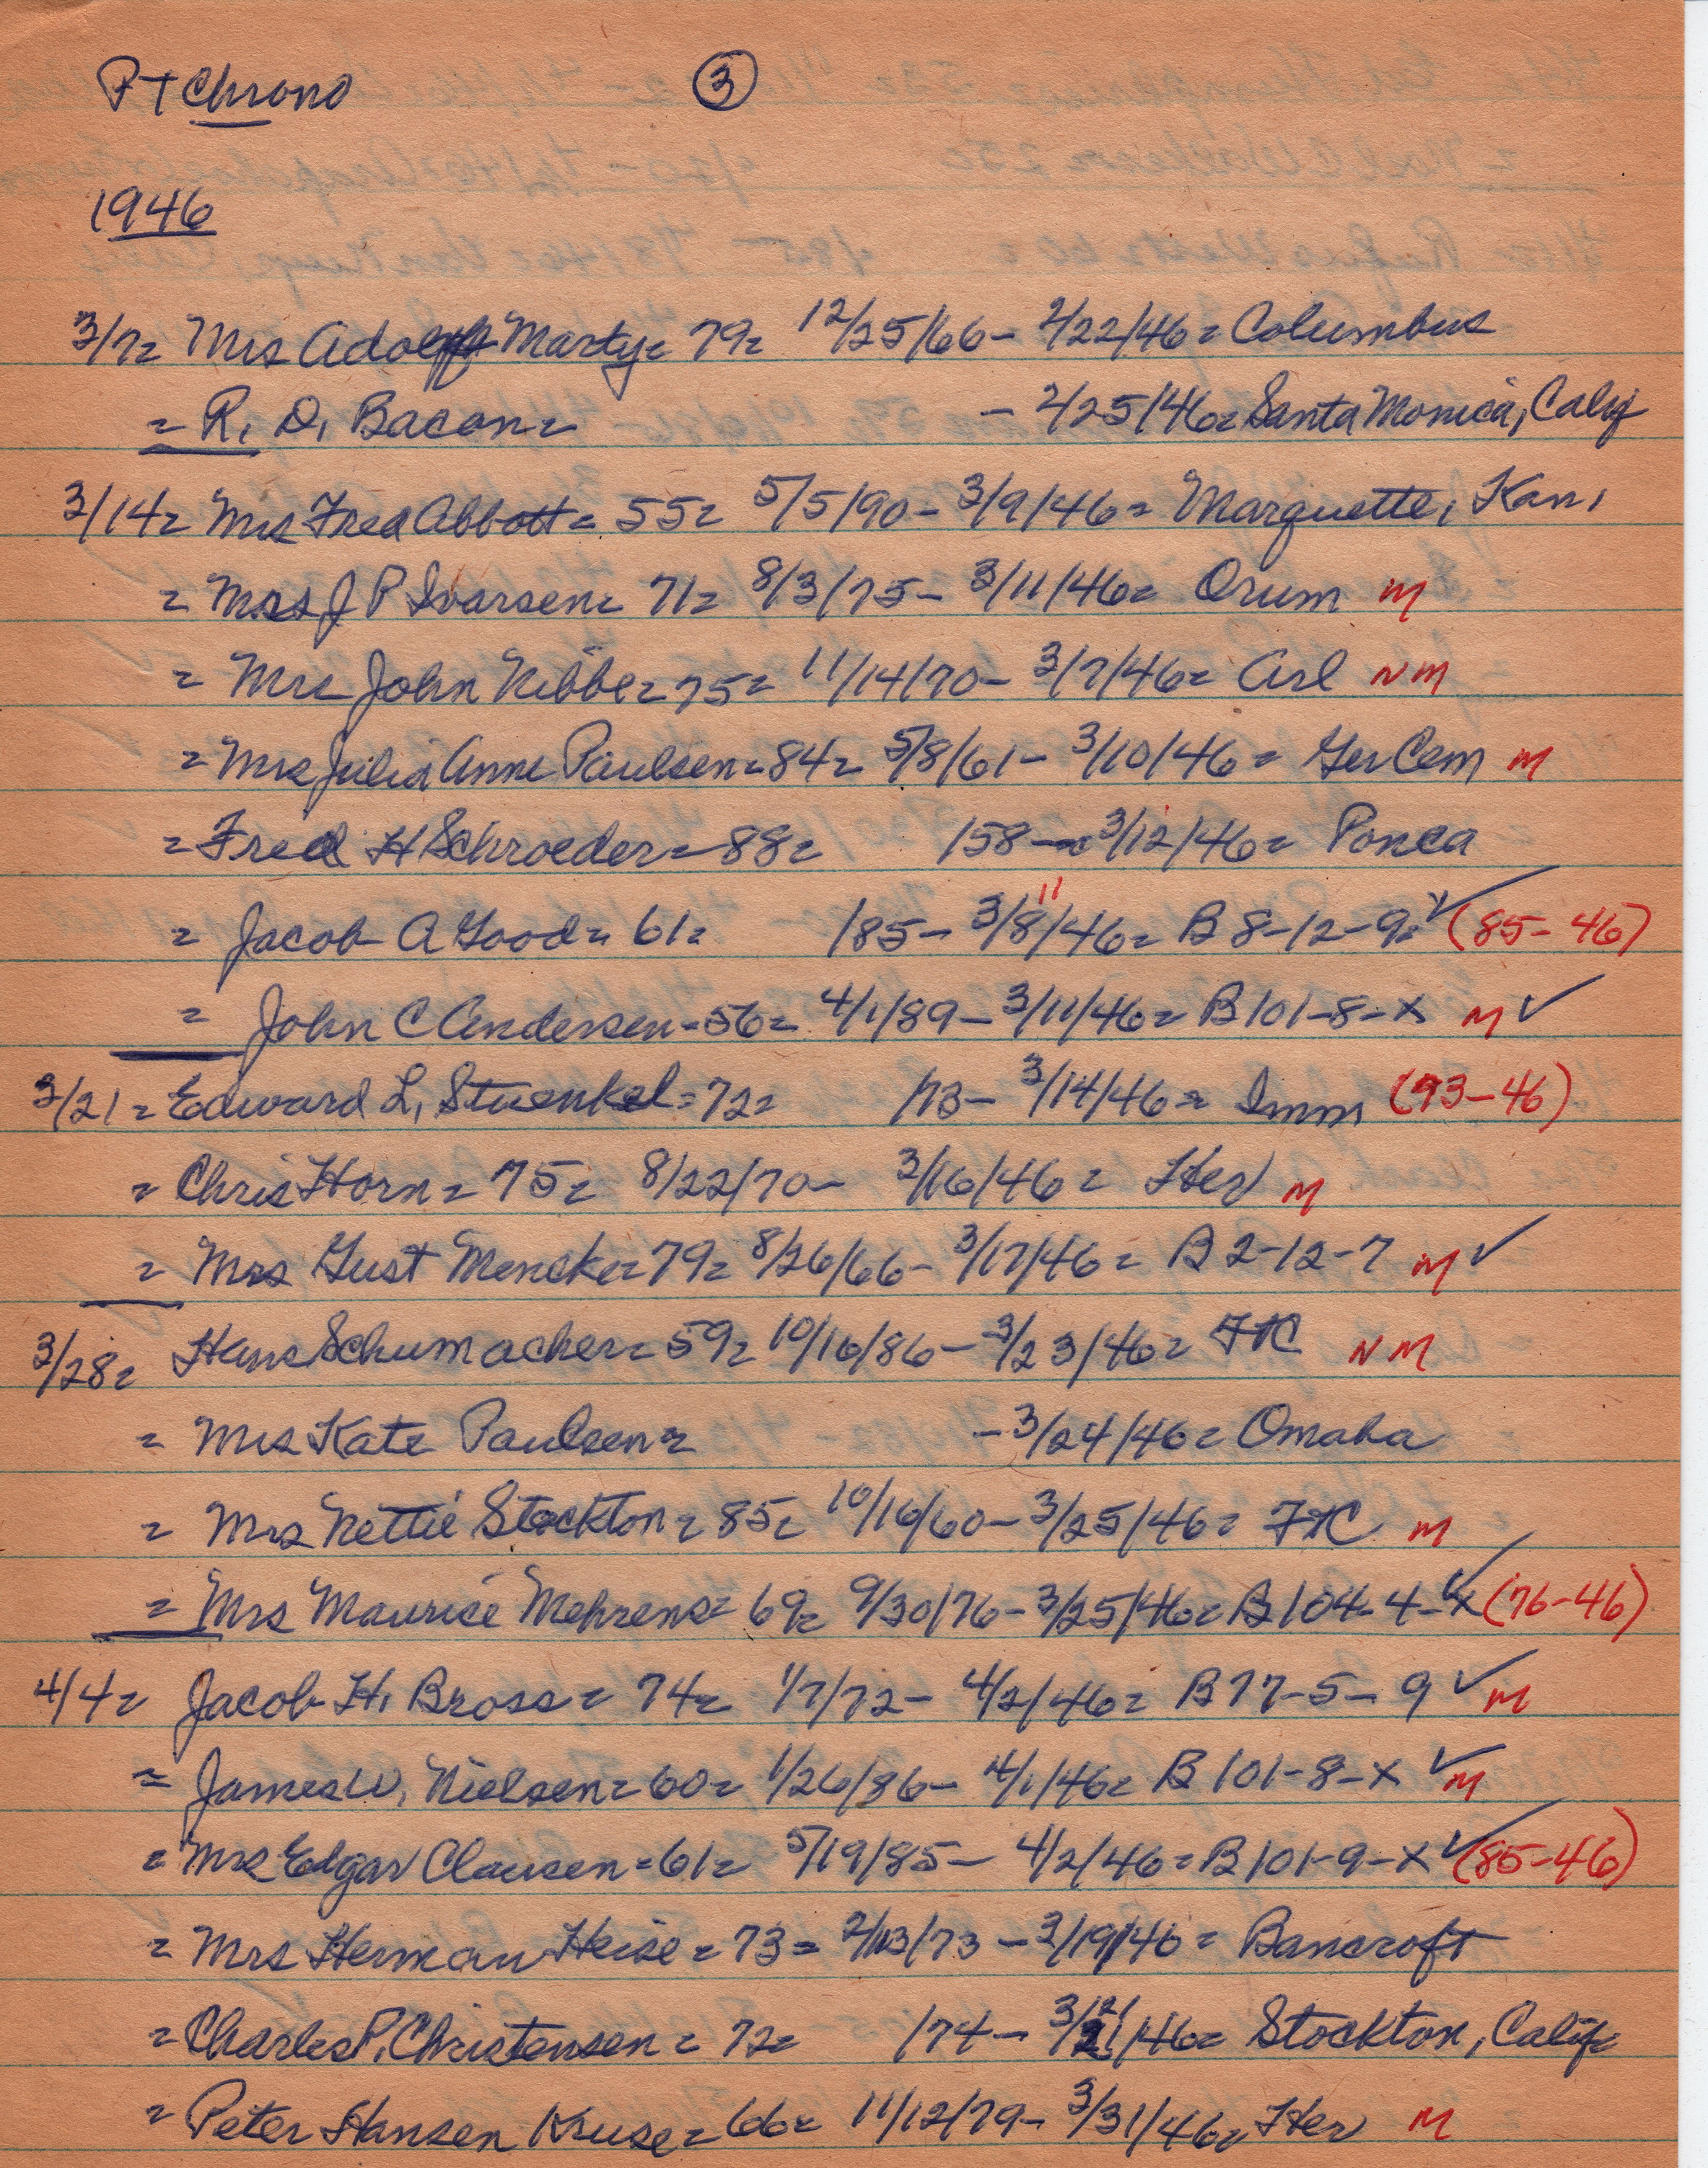 PT Chrono ③
1946
3/7= Mrs Adolph Marty= 79= 12/25/66- 2/22/46= Columbus
= R. D. Bacon= - 2/25/46= Santa Monica, Calif
3/14= Mrs Fred Abbott= 55= 5/5/90- 3/9/46= Marquette, Kan.
= Mrs J P Ivarsen= 71= 8/3/75- 3/11/46= Orum M
= Mrs John Nibbe= 75= 11/14/70- 3/7/46= Arl NM
= Mrs Julia Anne Paulsen= 84= 5/8/61- 3/10/46= Ger Cem M
= Fred H Schroeder= 88= /58- 3/12/46= Ponca
= Jacob A Good= 61= /85- 3/8/46= B 8-12-9= ✓ (85-46)
11
= John C Andersen= 56= 4/1/89- 3/11/46= B 101-8-x M ✓
3/21= Edward L. Stuenkel= 72= /73- 3/14/46= Imm (73-46)
= Chris Horn= 75= 8/22/70- 3/16/46= Her M
= Mrs Gust Mencke= 79= 8/26/66- 3/17/46= B 2-12-7 M ✓
3/28= Hans Schumacher= 59= 10/16/86- 3/23/46= FTC NM
= Mrs Kate Paulsen= - 3/24/46= Omaha
= Mrs Nettie Stockton= 85= 10/16/60- 3/25/46= FTC M
= Mrs Maurice Mehrens= 69= 9/30/76- 3/25/46= B 104-4-x ✓ (76-46)
4/4= Jacob H. Bross= 74= 1/7/72- 4/2/46= B 77-5-9 ✓ M
= James W. Nielsen= 60= 1/26/86- 4/1/46= B 101-8-x ✓ M
= Mrs Edgar Clausen= 61= 5/19/85- 4/2/46= B 101-9-x ✓ (85-46)
= Mrs Herman Heise= 73= 2/13/73- 3/19/46= Bancroft
= Charles P. Christensen= 72= /74- 3/21/46= Stockton, Calif
= Peter Hansen Kruse= 66= 11/12/79- 3/31/46= Her M